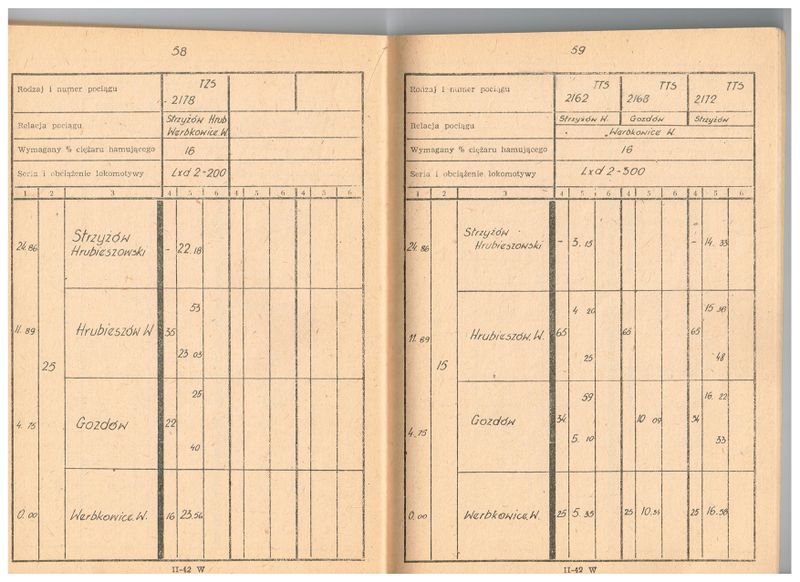 58
Rodzaj i numer pociągu
TZS
2178
Relacja pociągu
Strzyżów Hrub
Werbkowice.W.
Wymagany % ciężaru hamującego
16
Seria i obciążenie lokomotywy
Lxd 2-200
1 2 3 4 5 6 4 5 6 4 5 6
24.86
Strzyżów
Hrubieszowski
- 22.18
53
11.89
Hrubieszów W
35
23 03
25
25
4.75
Gozdów
22
40
0.00
Werbkowice.W.
16 23.56
II-42 W
59
Rodzaj i numer pociągu
TTS
2162
TTS
2168
TTS
2172
Relacja pociągu
Strzyżów W.
Gozdów
Strzyżów
Werbkowice W.
Wymagany % ciężaru hamującego
16
Seria i obciążenie lokomotywy
Lxd 2-300
1 2 3 4 5 6 4 5 6 4 5 6
24.86
Strzyżów
Hrubieszowski
- 3.15
- 14.33
4 20
15 38
11.89
Hrubieszów.W.
65
65
65
25
48
15
59
16.22
4.75
Gozdów
34
10 09
34
5.10
33
0.00
Werbkowice.W.
25 5.35
25 10.34
25 16.58
II-42 W